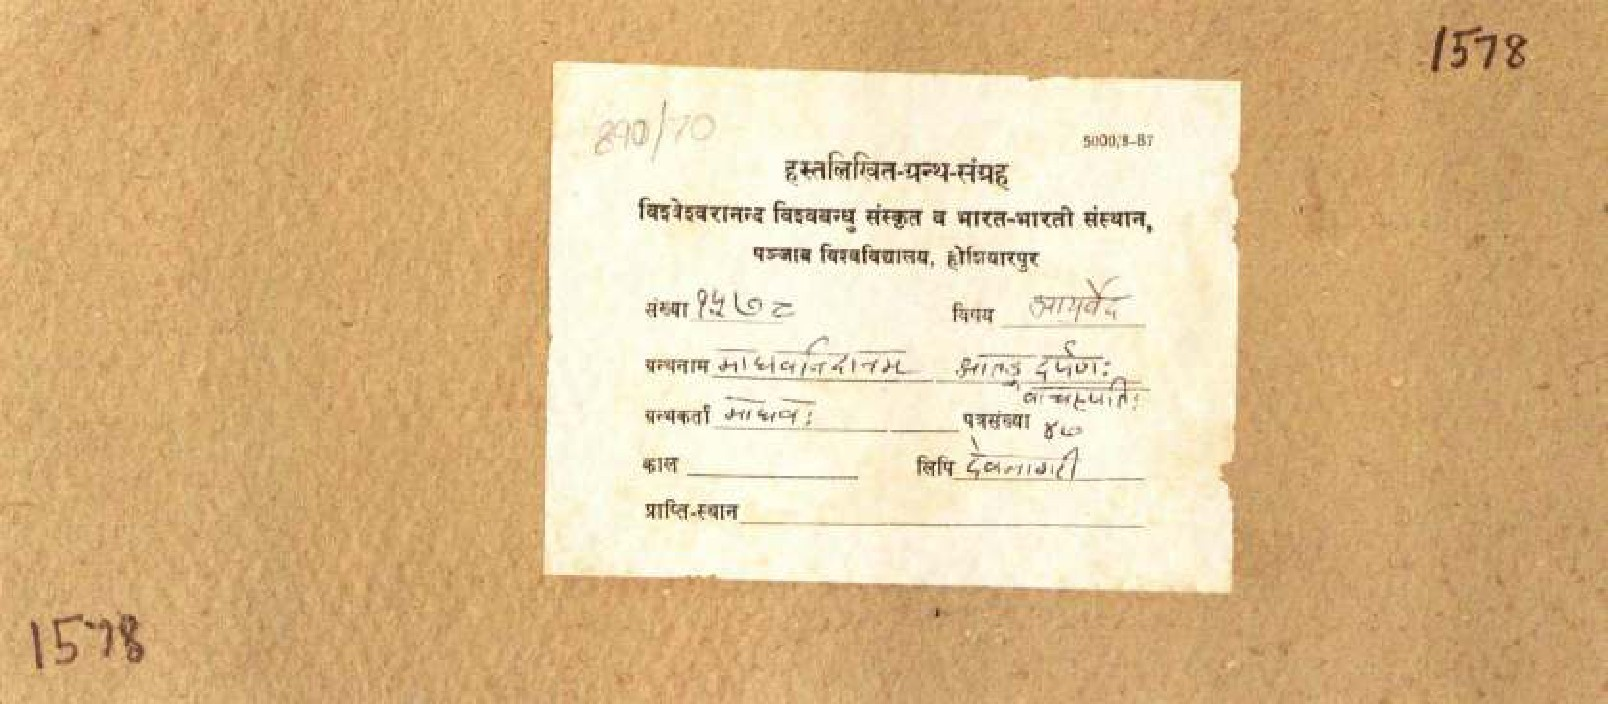 1578
890/70
5000/8-87
हस्तलिखित-ग्रन्थ-संग्रह
विश्वेश्वरानन्द विश्वबन्धु संस्कृत व भारत-भारती संस्थान,
पञ्जाब विश्वविद्यालय, होशियारपुर
संख्या १५७८ विषय आयुर्वेद
ग्रन्थनाम माधवनिदानम आतङ्क दर्पणः
वाचस्पतिः
ग्रन्थकर्ता माधवः पत्रसंख्या
काल लिपि देवनागरी
प्राप्ति-स्थान
1578